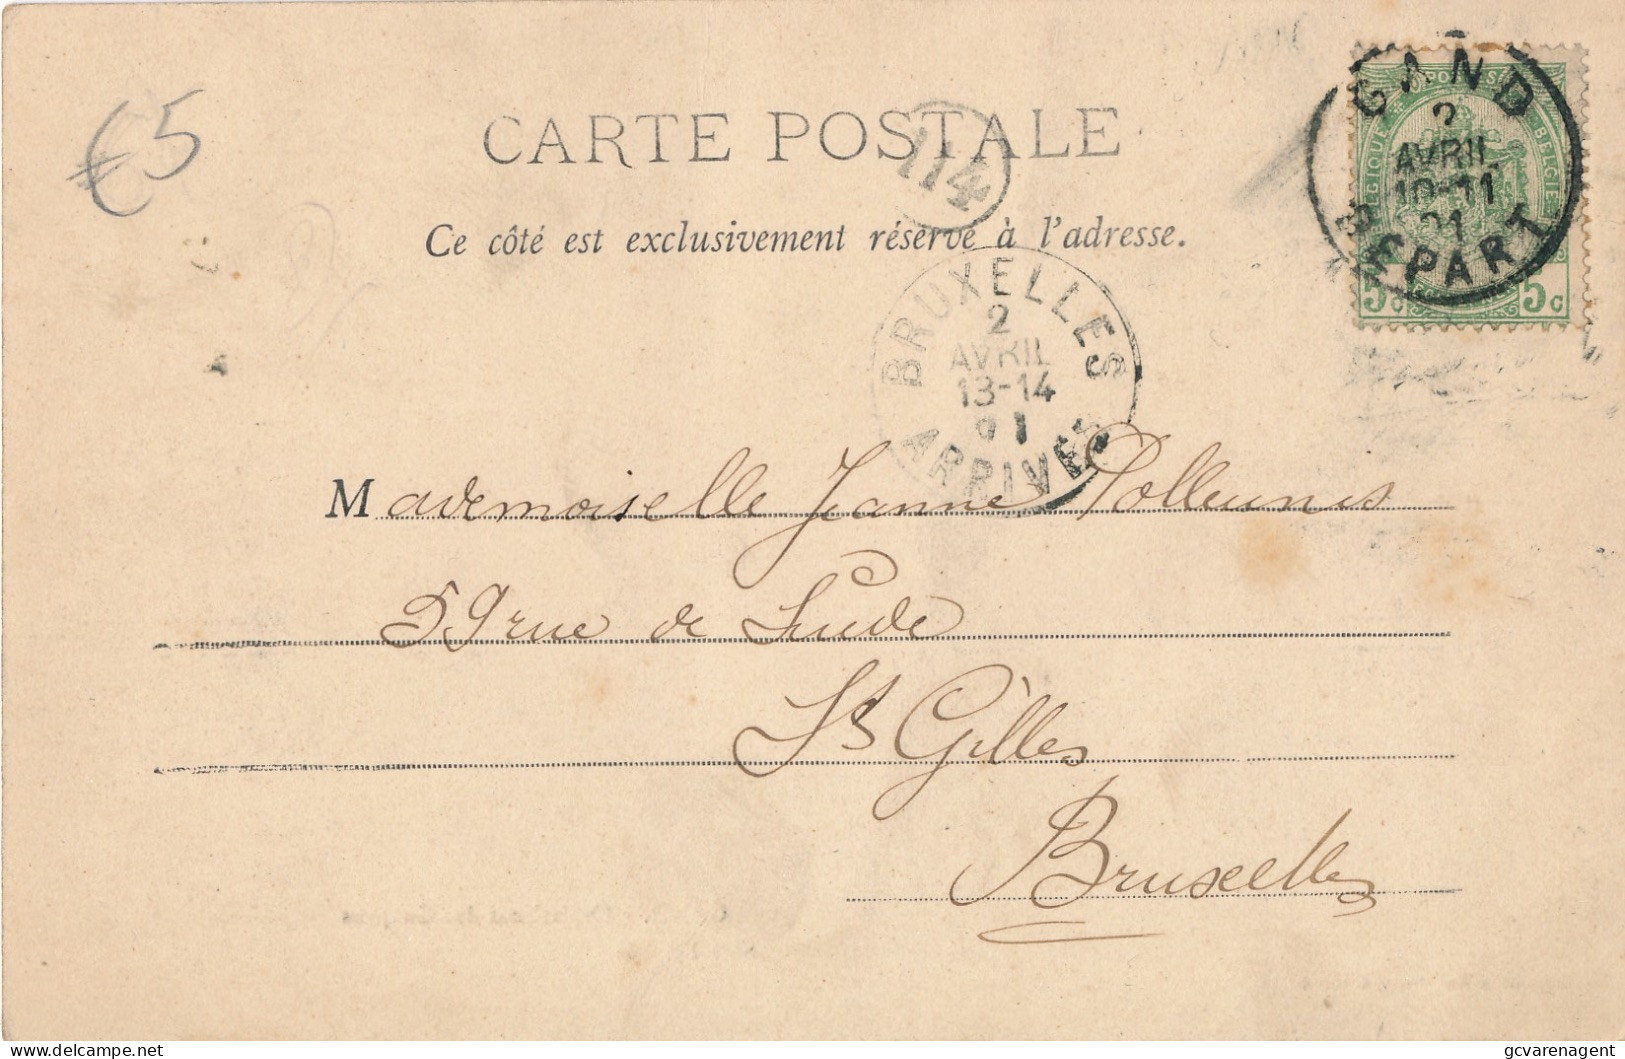 €5
CARTE POSTALE
114
Ce côté est exclusivement réservé à l'adresse.
GAND
2
AVRIL
10-11
DEPART
BELGIQUE
BELGIE
5c 5c
BRUXELLES
2
AVRIL
13-14
01
ARRIVEE
Mademoiselle Jeanne Polleunis
59 rue de Suède
St Gilles
Bruxelles
delcampe.net
gcvarenagent